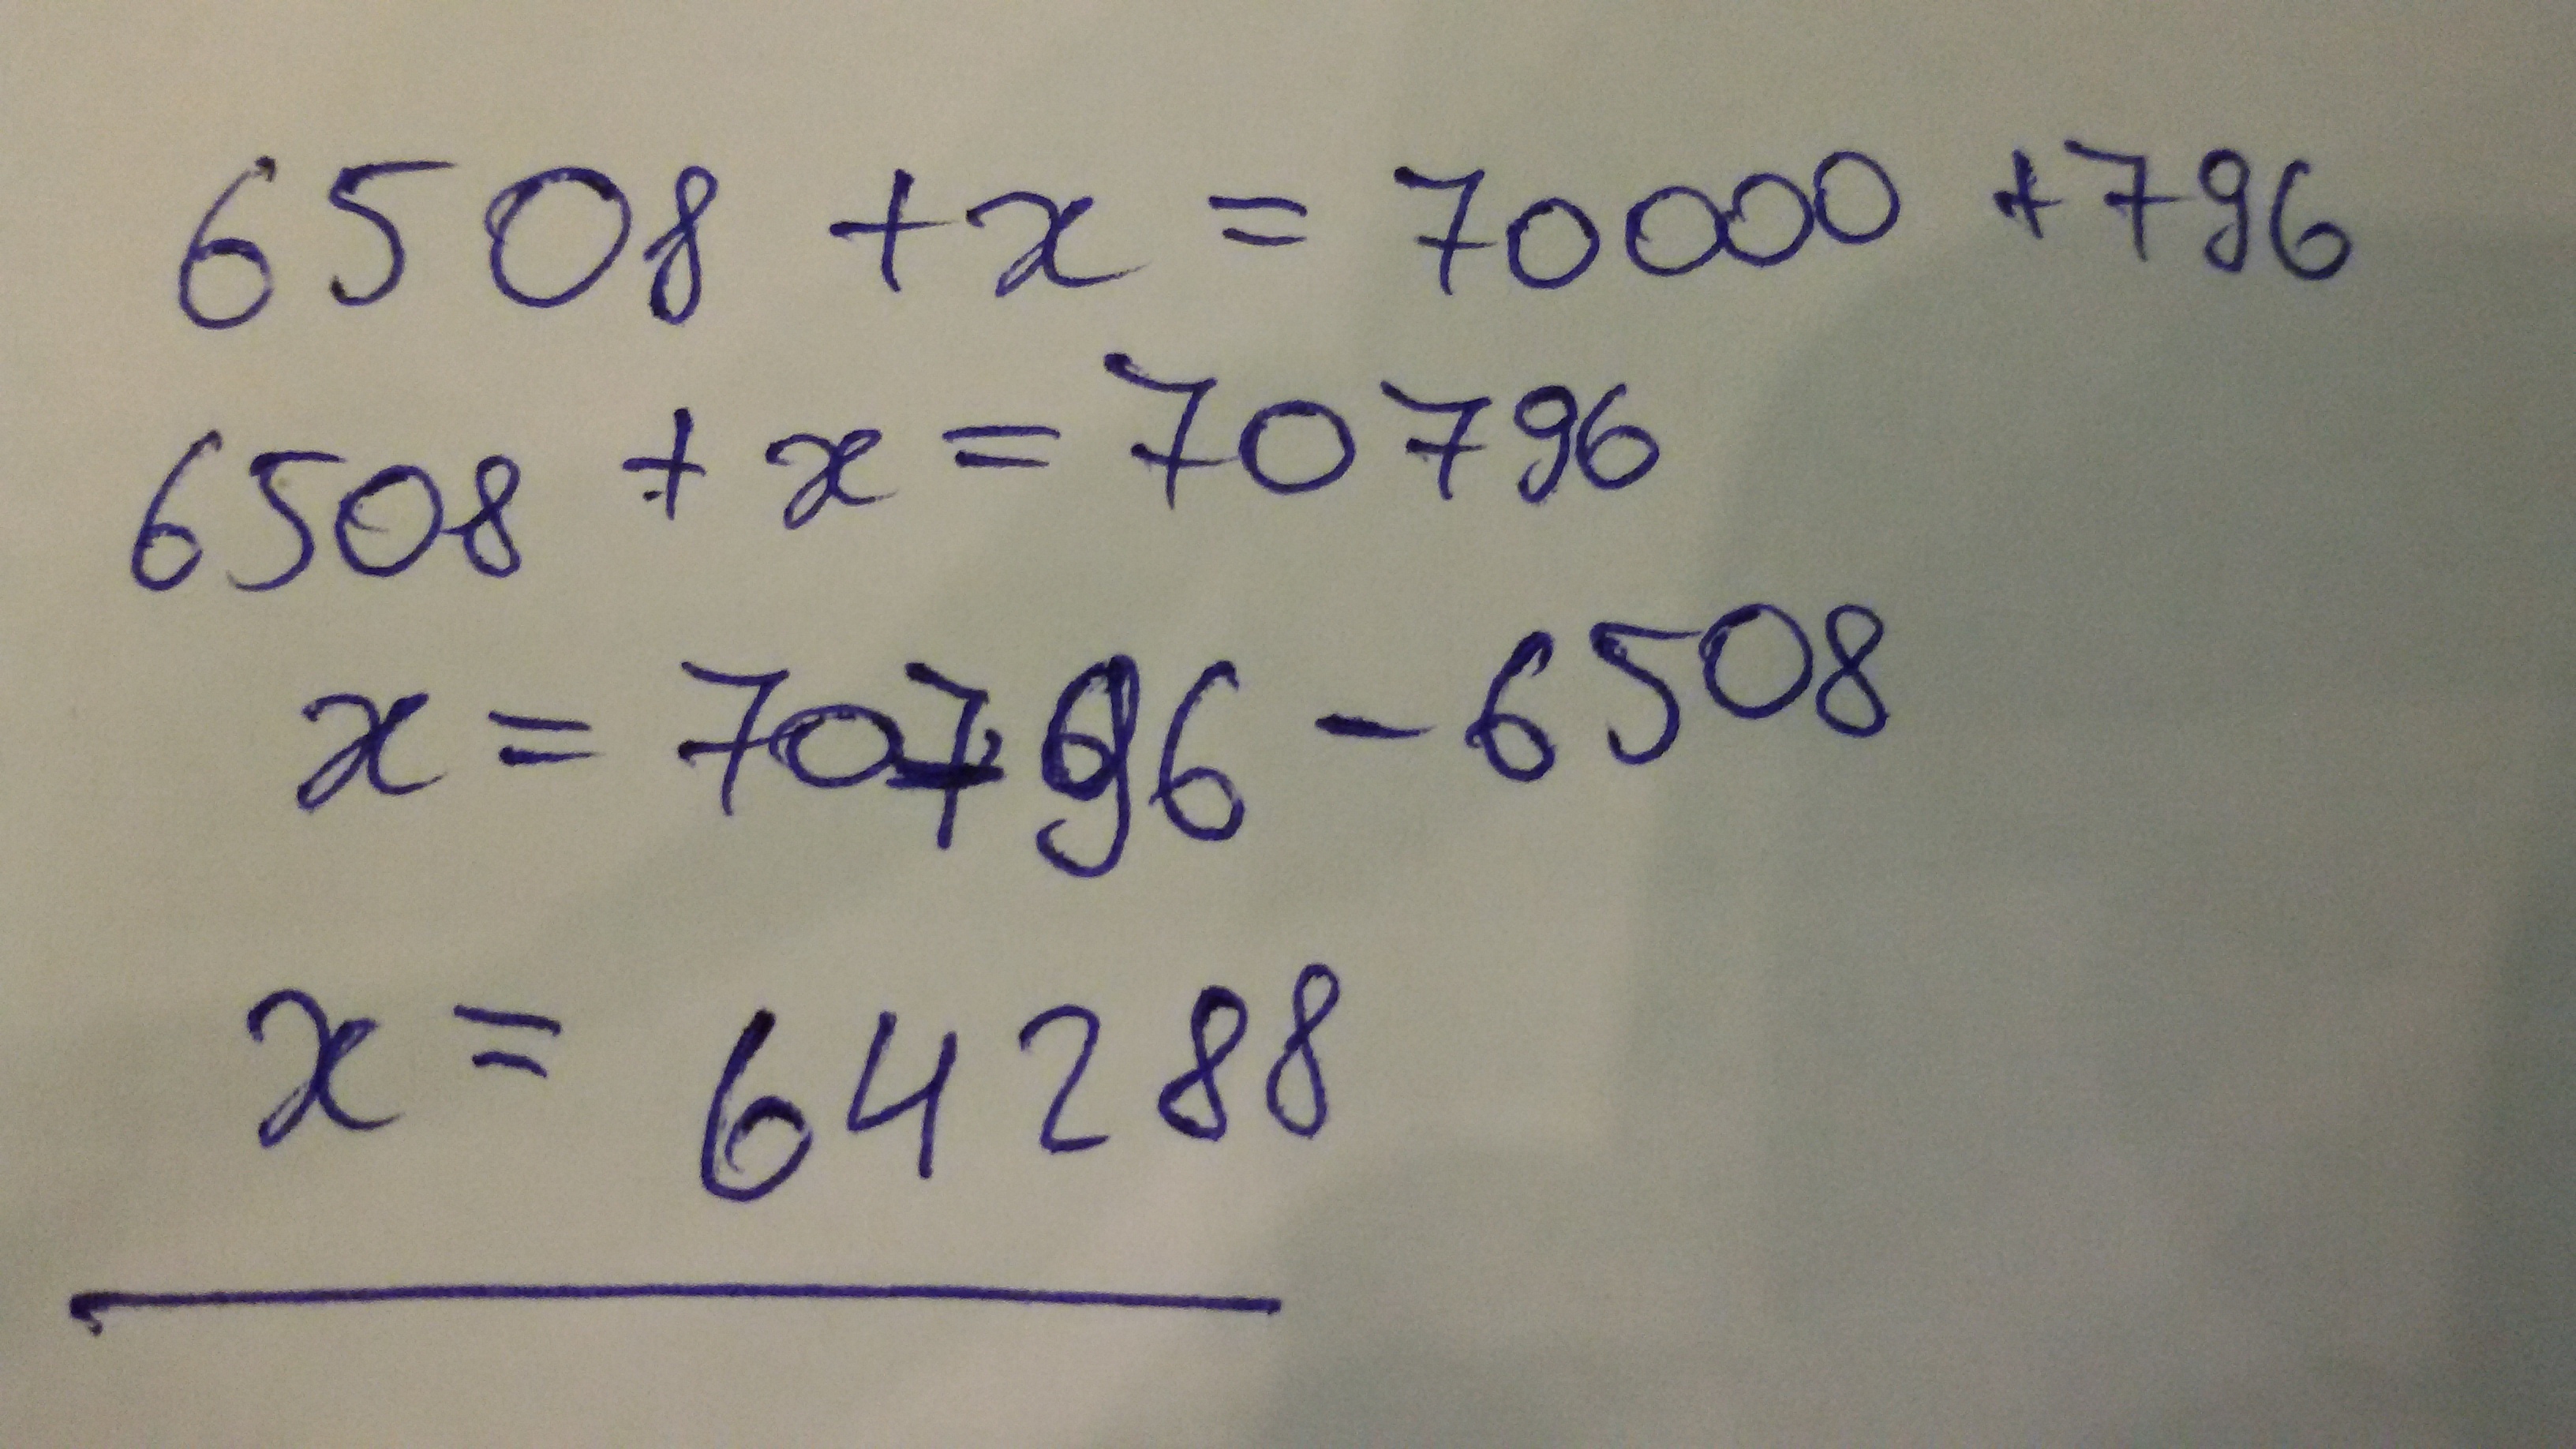 6508 + x = 70000 + 796
6508 + x = 70796
x = 70796 - 6508
x = 64288